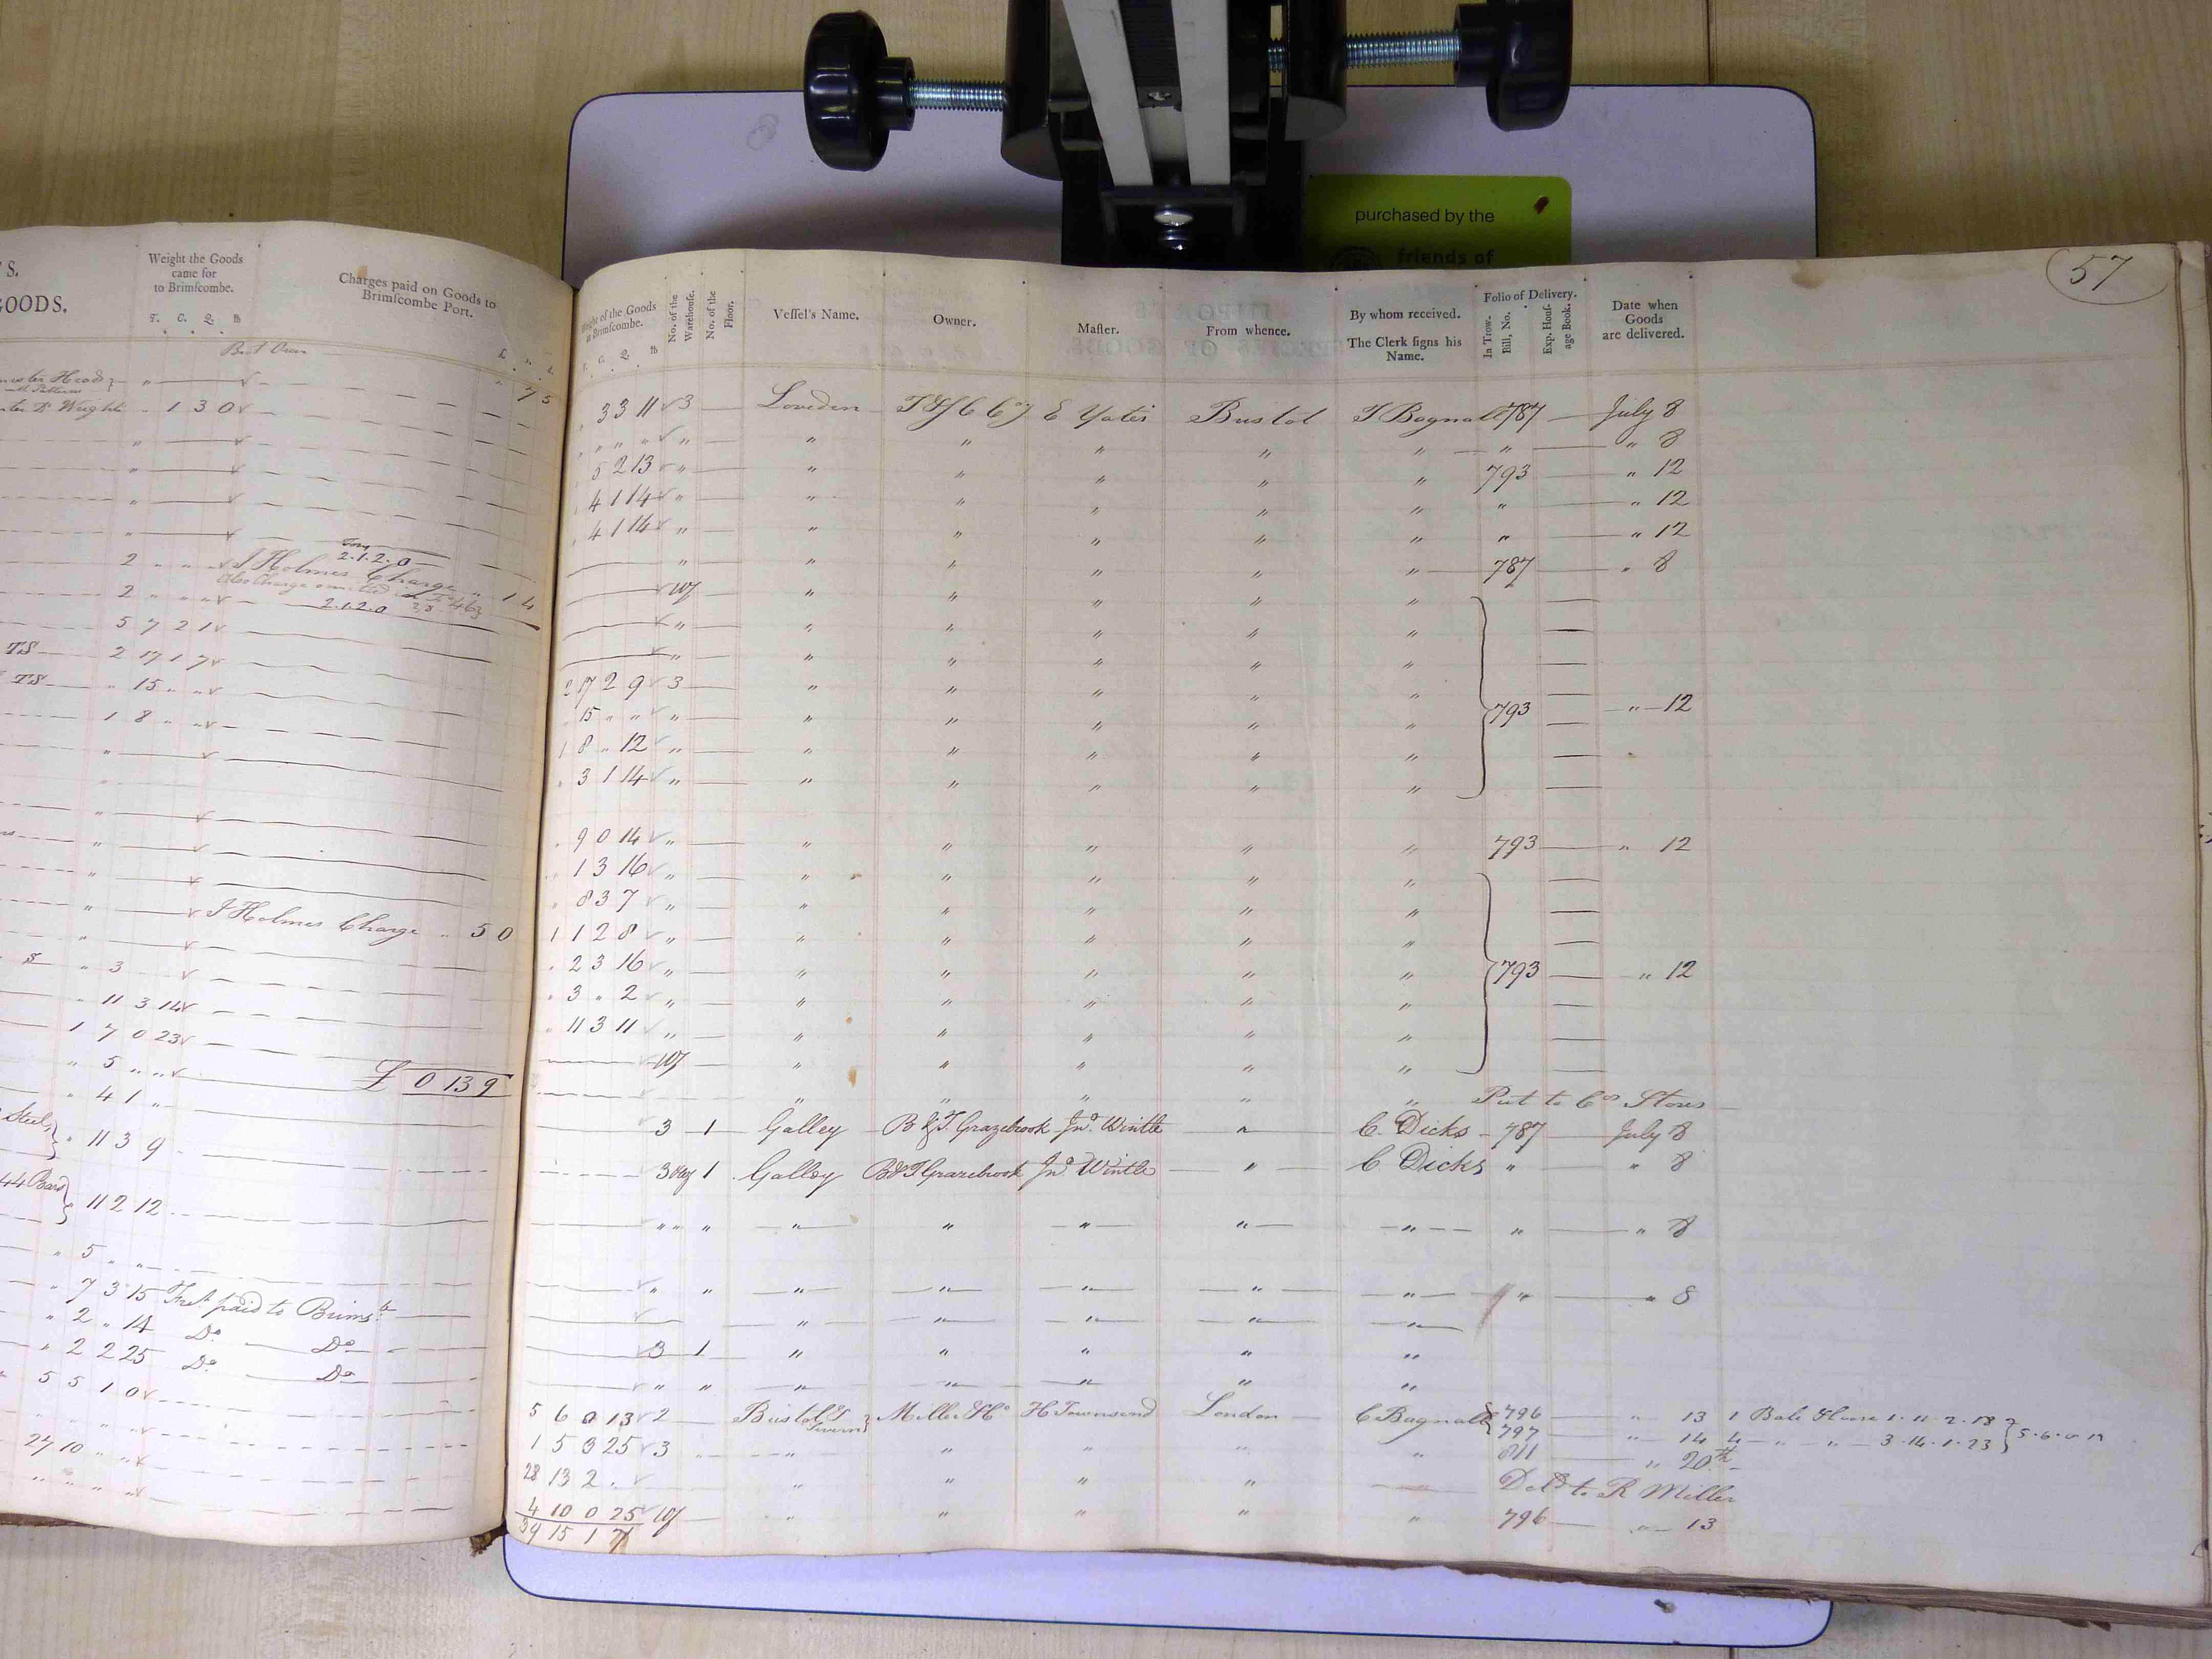 purchased by the
friends of
S.
GOODS.
Weight the Goods
came for
to Brimſcombe.
T. C. Q. lb
Charges paid on Goods to
Brimſcombe Port.
1 3 0
2 " "
2.1.2.0
J Holmes Charge " 14
2 " " "
2.1.2.0
5 7 2 1
TS 2 17 1 7
TS " 15 " "
1 8 " "
J Holmes Charge " 5 0
" 3
" 11 3 14
1 7 0 23
" 5 " "
£ 0 13 9
" 4 1 "
Steel " 11 3 9
44 Bars 11 2 12
" 5 " "
" 7 3 15 Fret paid to Brims
" 2 " 14 Do Do
" 2 2 25 Do Do
5 5 1 0
27 10 " "
57
of the Goods
Brimſcombe.
C. Q. lb
No. of the
Warehouſe.
No. of the
Floor.
Veſſel's Name.
Owner.
Maſter.
From whence.
By whom received.
The Clerk ſigns his
Name.
Folio of Delivery.
In Trow-
Bill, No.
Exp. Houſ-
age Book.
Date when
Goods
are delivered.
3 3 11 3 Loveden E Yates Bristol T Bagnall 787 July 8
" " " " " " " " " " " " 8
5 2 13 " " " " " " 793 " 12
4 1 14 " " " " " " " " 12
4 1 14 " " " " " " " " 12
" " " " " " 787 " 8
" " " " "
" " " " " "
" " " " " "
2 17 2 9 3 " " " " "
" 15 " " " " " " " " 793 " 12
1 8 " 12 " " " " " "
" 3 1 14 " " " " " "
" 9 0 14 " " " " " " 793 " 12
" 1 3 16 " " " " " "
" 8 3 7 " " " " " "
1 1 2 8 " " " " " "
" 2 3 16 " " " " " " 793 " 12
" 3 " 2 " " " " " "
" 11 3 11 " " " " " "
" " " " "
" " " " " Put to Cos Stores
3 1 Galley B & T. Grazebrook Jno. Wintle " C. Dicks 787 July 8
3 1 Galley B & T Grazebrook Jno Wintle " C Dicks " " 8
" " " " " " " " " " 8
" " " " " " " " " 8
" " " " "
3 1 " " " " "
" " " " " " "
5 6 0 13 2 Bristol & Severn Miller & Co H Townsend London C Bagnall 796 " 13 1 Bale 1.11.2.18
797 " 14 4 " " 3.14.1.23 } 5.6.0.13
1 5 3 25 3 " " " " " 811 " 20th
28 13 2 " " " " " Deld to R Miller
4 10 0 25 " " " " " 796 " 13
39 15 1 7